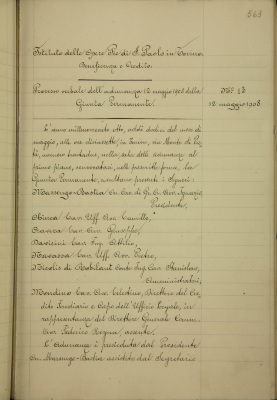 563
Istituto delle Opere Pie di S. Paolo in Torino
Beneficenza e Credito.
Processo verbale dell'adunanza 12 maggio 1908 della
Giunta Permanente.
N° 13
12 maggio 1908
L'anno millenovecento otto, addì dodici del mese di
maggio, alle ore diciassette, in Torino, via Monte di Pie-
tà, numero trentadue, nella sala delle adunanze al
primo piano, convocatasi, nelle prescritte forme, la
Giunta Permanente, risultano presenti i Signori:
Marsengo-Bastia Cav. di Gr. Cr. Avv. Ignazio,
Presidente,
Cav. Uff. Avv. Camillo,
Cav. Avv. Giuseppe,
Cav. Ing. Attilio,
Ravazza Cav. Uff. Avv. Pietro,
Nicolis di Robilant Conte Ing. Cav. Stanislao,
Amministratori,
Mondino Cav. Avv. Celestino, Direttore del Cre-
dito Fondiario e Capo dell'Ufficio Legale, in
rappresentanza del Direttore Generale Comm.
Avv. Federico assente.
L'adunanza è presieduta dal Presidente
Marsengo-Bastia assistito dal Segretario